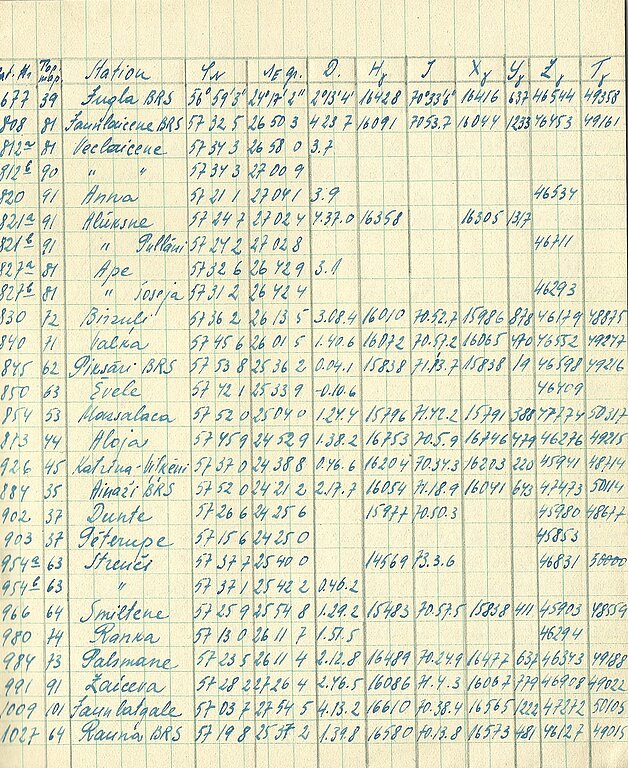 Station φN λE gr. D. Hγ I Xγ Yγ Zγ Tγ
677 39 Jugla BRS 56°59'3" 24°17'2" 2°13'4' 16428 70°33'6" 16416 637 46544 49358
808 81 Jaunlaicene BRS 57 32 5 26 50 3 4 23 7 16091 70.53.7 16044 1233 46453 49161
812a 81 Veclaicene 57 34 3 26 58 0 3.7
812b 90 " " 57 34 3 27 00 9
820 91 Anna 57 21 1 27 04 1 3.9 46534
821a 91 Alūksne 57 24 7 27 02 4 4.37.0 16358 16305 1317
821b 91 " Pullāni 57 24 2 27 02 8 46711
827a 81 Ape 57 32 6 26 42 9 3.1
827b 81 " šoseja 57 31 2 26 42 4 46293
830 72 Birzuļi 57 36 2 26 13 5 3.08.4 16010 70.52.7 15986 878 46179 48875
840 71 Valka 57 45 6 26 01 5 1.40.6 16072 70.57.2 16065 470 46552 49247
845 62 Piksāri BRS 57 53 8 25 36 2 0.04.1 15838 71.13.7 15838 19 46598 49216
850 63 Evele 57 42 1 25 33 9 -0.10.6 46409
854 53 Mazsalaca 57 52 0 25 04 0 1.24.4 15796 71.42.2 15791 388 47774 50317
873 44 Aloja 57 45 9 24 52 9 1.38.2 16753 70.5.9 16746 479 46276 49215
926 45 Katrina- 57 37 0 24 38 8 0.46.6 16204 70.34.3 16203 220 45941 48714
884 35 Ainaži BRS 57 52 0 24 21 2 2.17.7 16054 71.18.9 16041 643 47473 50114
902 37 Dunte 57 26 6 24 25 6 15977 70.50.3 45980 48677
903 37 Pēterupe 57 15 6 24 25 0 45853
954a 63 Strenči 57 37 7 25 40 0 14569 73.3.6 46831
954b 63 " 57 37 1 25 42 2 0.46.2
966 64 Smiltene 57 25 9 25 54 8 1.29.2 15483 70.57.5 15838 411 45903 48559
980 74 Ranka 57 13 0 26 11 7 1.51.5 46294
984 73 Palsmane 57 23 5 26 11 4 2.12.8 16489 70.24.9 16477 637 46343 49188
991 91 Zaiceva 57 28 2 27 26 4 2.46.5 16086 71.4.3 16067 779 46908 49022
1009 101 Jaunlatgale 57 03 7 27 54 5 4.13.2 16610 70.38.4 16565 1222 47272 50105
1027 64 Rauna BRS 57 19 8 25 37 2 1.39.8 16580 70.13.8 16573 481 46127 49015